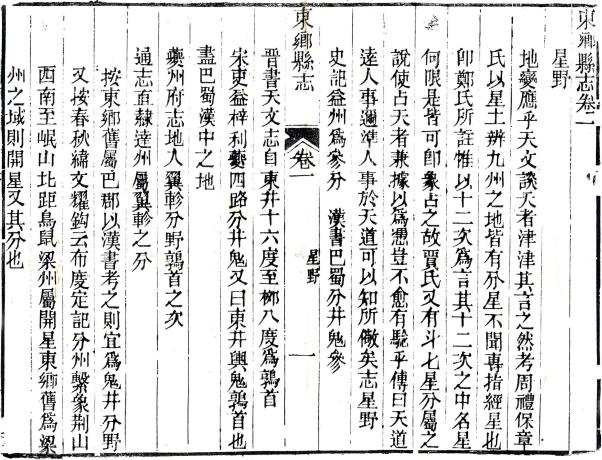 東鄉縣志卷二
星野
地變應乎天文談天者津津其言之然考周禮保章
氏以星土辨九州之地皆有分星不聞專指經星也
卽鄭氏所註惟以十二次爲言其十二次之中名星
何限是皆可卽象占之故賈氏又有斗七星分屬之
說使占天者兼據以爲憑豈不愈有驗乎傳曰天道
遠人事邇準人事於天道可以知所儆矣志星野
史記益州爲參分 漢書巴蜀分井鬼參
東鄉縣志
卷一
星野
一
晉書天文志自東井十六度至柳八度爲鶉首
宋史益梓利夔四路分井鬼又曰東井輿鬼鶉首也
盡巴蜀漢中之地
夔州府志地人翼軫分野鶉首之次
通志直隷達州屬翼軫之分
按東鄉舊屬巴郡以漢書考之則宜爲鬼井分野
又按春秋緯文耀鈎云布度定記分州繫象荆山
西南至岷山北距鳥鼠梁州屬開星東鄉舊爲梁
州之域則開星又其分也